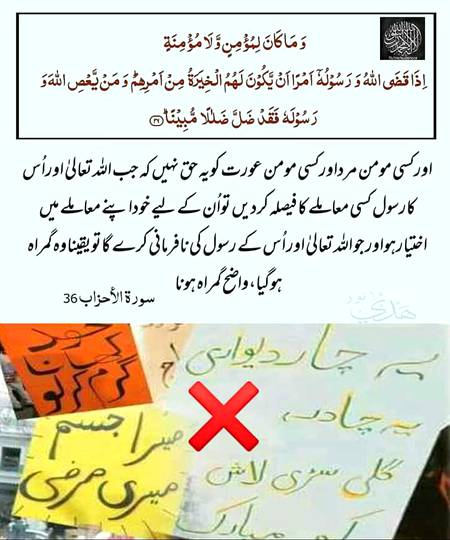 وَمَا كَانَ لِمُؤْمِنٍ وَّلَا مُؤْمِنَةٍ
اِذَا قَضَى اللّٰهُ وَ رَسُوْلُهٗۤ اَمْرًا اَنْ يَّكُوْنَ لَهُمُ الْخِيَرَةُ مِنْ اَمْرِهِمْ ؕ وَ مَنْ يَّعْصِ اللّٰهَ وَ
رَسُوْلَهٗ فَقَدْ ضَلَّ ضَلٰلًا مُّبِيْنًا ؕ﴿۳۶﴾
اور کسی مومن مرد اور کسی مومن عورت کو یہ حق نہیں کہ جب اللہ تعالیٰ اور اُس
کا رسول کسی معاملے کا فیصلہ کر دیں تو اُن کے لیے خود اپنے معاملے میں
اختیار ہو اور جو اللہ تعالیٰ اور اُس کے رسول کی نافرمانی کرے گا تو یقیناً وہ گمراہ
ہو گیا، واضح گمراہ ہونا
سورة الأحزاب 36
هَدْي
خود
کھانا
گرم کر لو
میرا جسم
میری مرضی
یہ چار دیواری
یہ چادر
گلی سڑی لاش
کو مبارک